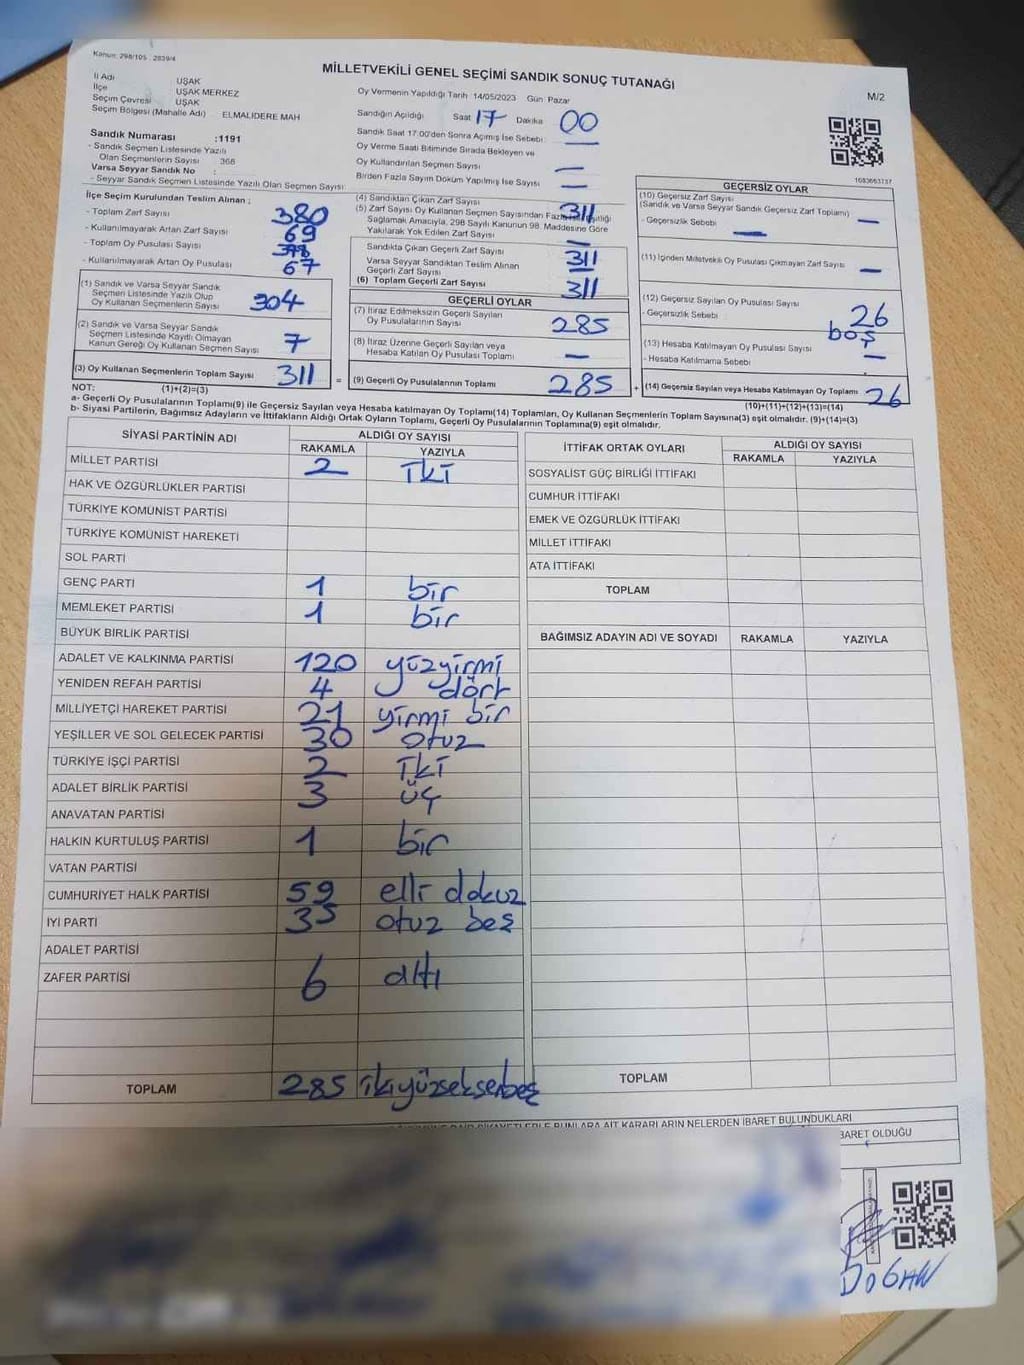 Kanun: 298/105 , 2839/4
MİLLETVEKİLİ GENEL SEÇİMİ SANDIK SONUÇ TUTANAĞI
M/2
İl Adı UŞAK
İlçe UŞAK MERKEZ
Seçim Çevresi UŞAK
Seçim Bölgesi (Mahalle Adı) : ELMALIDERE MAH
Oy Vermenin Yapıldığı Tarih :14/05/2023 Gün: Pazar
Sandığın Açıldığı Saat 17 Dakika 00
Sandık Saat 17:00'den Sonra Açılmış İse Sebebi: —
Oy Verme Saati Bitiminde Sırada Bekleyen ve
Oy Kullandırılan Seçmen Sayısı —
Birden Fazla Sayım Döküm Yapılmış İse Sayısı —
Sandık Numarası :1191
- Sandık Seçmen Listesinde Yazılı
Olan Seçmenlerin Sayısı : 368
Varsa Seyyar Sandık No :
- Seyyar Sandık Seçmen Listesinde Yazılı Olan Seçmen Sayısı:
İlçe Seçim Kurulundan Teslim Alınan ;
- Toplam Zarf Sayısı 380
- Kullanılmayarak Artan Zarf Sayısı 69
- Toplam Oy Pusulası Sayısı
- Kullanılmayarak Artan Oy Pusulası 67
(1) Sandık ve Varsa Seyyar Sandık
Seçmen Listesinde Yazılı Olup
Oy Kullanan Seçmenlerin Sayısı 304
(2) Sandık ve Varsa Seyyar Sandık
Seçmen Listesinde Kayıtlı Olmayan
Kanun Gereği Oy Kullanan Seçmen Sayısı 7
(3) Oy Kullanan Seçmenlerin Toplam Sayısı 311
(4) Sandıktan Çıkan Zarf Sayısı 311
(5) Zarf Sayısı Oy Kullanan Seçmen Sayısından Fazla İse Eşitliği
Sağlamak Amacıyla, 298 Sayılı Kanunun 98. Maddesine Göre
Yakılarak Yok Edilen Zarf Sayısı —
Sandıkta Çıkan Geçerli Zarf Sayısı 311
Varsa Seyyar Sandıktan Teslim Alınan
Geçerli Zarf Sayısı —
(6) Toplam Geçerli Zarf Sayısı 311
GEÇERLİ OYLAR
(7) İtiraz Edilmeksizin Geçerli Sayılan
Oy Pusulalarının Sayısı 285
(8) İtiraz Üzerine Geçerli Sayılan veya
Hesaba Katılan Oy Pusulası Toplamı —
= (9) Geçerli Oy Pusulalarının Toplamı 285
1683663137
GEÇERSİZ OYLAR
(10) Geçersiz Zarf Sayısı
(Sandık ve Varsa Seyyar Sandık Geçersiz Zarf Toplamı) —
- Geçersizlik Sebebi : —
(11) İçinden Milletvekili Oy Pusulası Çıkmayan Zarf Sayısı —
(12) Geçersiz Sayılan Oy Pusulası Sayısı 26
- Geçersizlik Sebebi : boş
(13) Hesaba Katılmayan Oy Pusulası Sayısı —
- Hesaba Katılmama Sebebi :
+ (14) Geçersiz Sayılan veya Hesaba Katılmayan Oy Toplamı 26
NOT: (1)+(2)=(3)
(10)+(11)+(12)+(13)=(14)
a- Geçerli Oy Pusulalarının Toplamı(9) ile Geçersiz Sayılan veya Hesaba katılmayan Oy Toplamı(14) Toplamları, Oy Kullanan Seçmenlerin Toplam Sayısına(3) eşit olmalıdır. (9)+(14)=(3)
b- Siyasi Partilerin, Bağımsız Adayların ve İttifakların Aldığı Ortak Oyların Toplamı, Geçerli Oy Pusulalarının Toplamına(9) eşit olmalıdır.
SİYASİ PARTİNİN ADI ALDIĞI OY SAYISI
RAKAMLA YAZIYLA
MİLLET PARTİSİ 2 İki
HAK VE ÖZGÜRLÜKLER PARTİSİ
TÜRKİYE KOMÜNİST PARTİSİ
TÜRKİYE KOMÜNİST HAREKETİ
SOL PARTİ
GENÇ PARTİ 1 bir
MEMLEKET PARTİSİ 1 bir
BÜYÜK BİRLİK PARTİSİ
ADALET VE KALKINMA PARTİSİ 120 yüzyirmi
YENİDEN REFAH PARTİSİ 4 dört
MİLLİYETÇİ HAREKET PARTİSİ 21 yirmi bir
YEŞİLLER VE SOL GELECEK PARTİSİ 30 otuz
TÜRKİYE İŞÇİ PARTİSİ 2 İki
ADALET BİRLİK PARTİSİ 3 üç
ANAVATAN PARTİSİ
HALKIN KURTULUŞ PARTİSİ 1 bir
VATAN PARTİSİ
CUMHURİYET HALK PARTİSİ 59 elli dokuz
İYİ PARTİ 35 otuz beş
ADALET PARTİSİ
ZAFER PARTİSİ 6 altı
TOPLAM 285 ikiyüzseksenbeş
İTTİFAK ORTAK OYLARI ALDIĞI OY SAYISI
RAKAMLA YAZIYLA
SOSYALİST GÜÇ BİRLİĞİ İTTİFAKI
CUMHUR İTTİFAKI
EMEK VE ÖZGÜRLÜK İTTİFAKI
MİLLET İTTİFAKI
ATA İTTİFAKI
TOPLAM
BAĞIMSIZ ADAYIN ADI VE SOYADI RAKAMLA YAZIYLA
TOPLAM
BUNLARA AİT KARARLARIN NELERDEN İBARET BULUNDUKLARI
İBARET OLDUĞU
DOĞAN